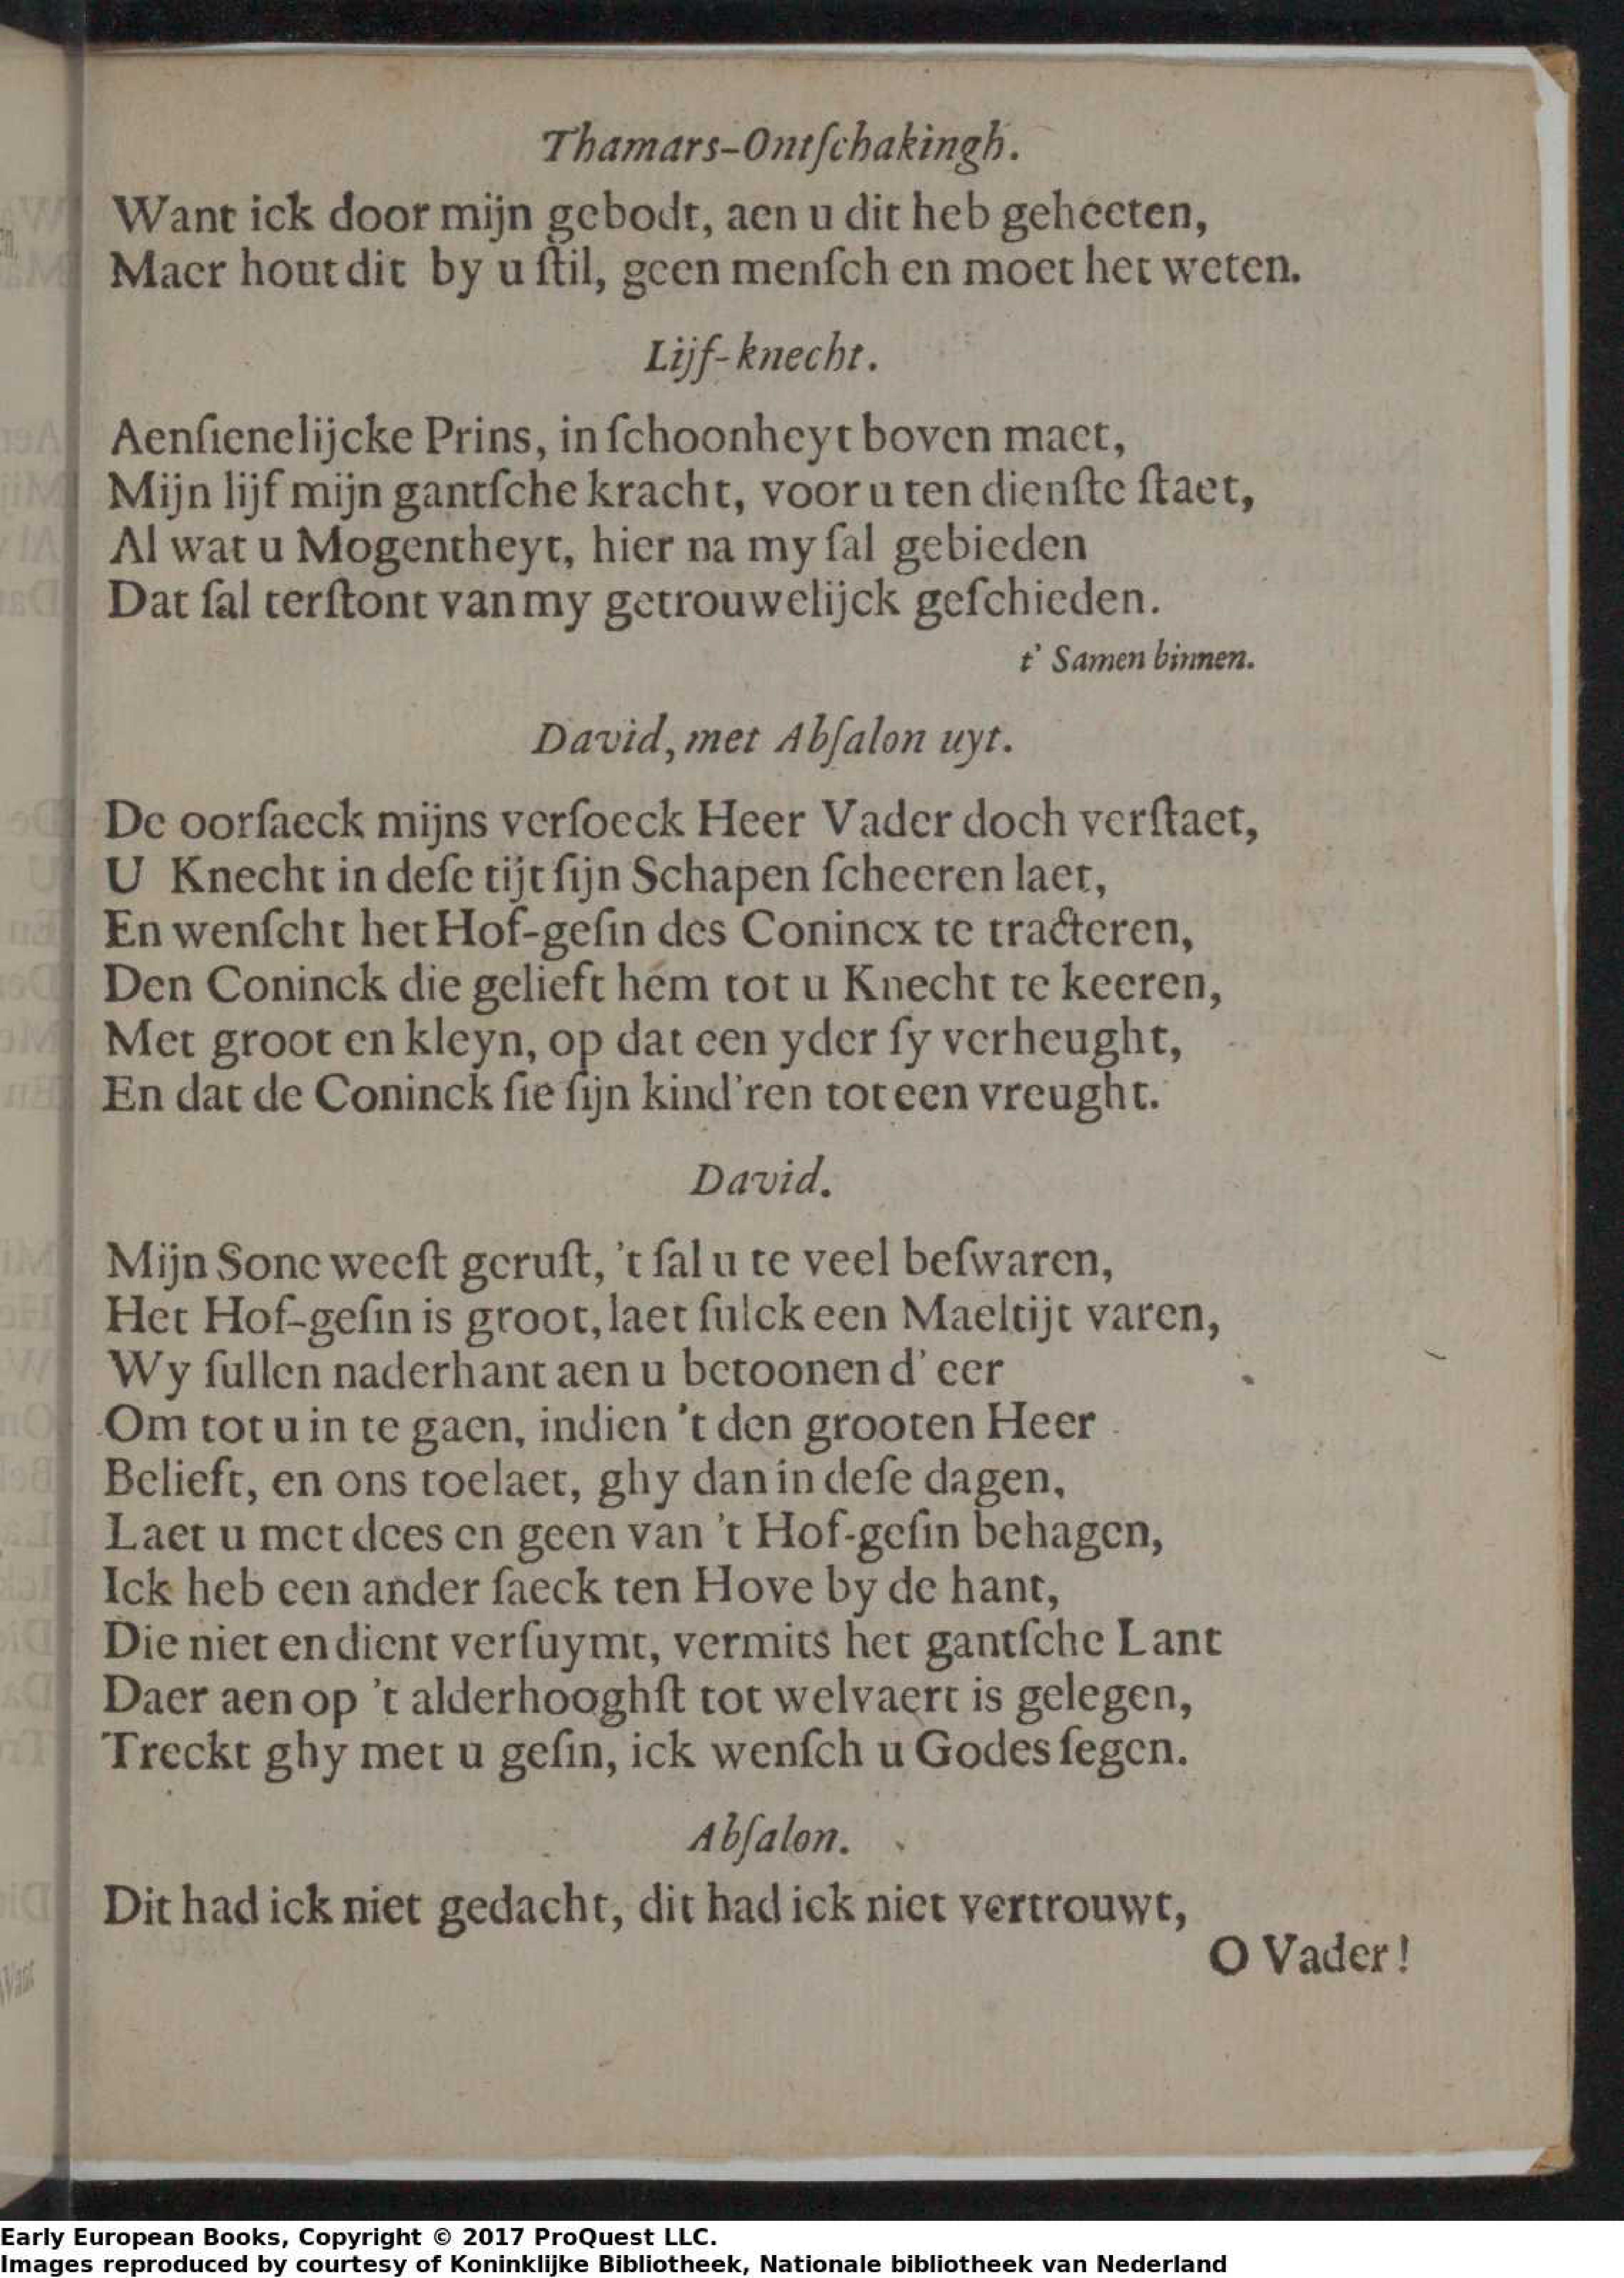 Thamars-Ontſchakingh.
Want ick door mijn gebodt, aen u dit heb geheeten,
Maer hout dit by u ſtil, geen menſch en moet het weten.
Lijf-knecht.
Aenſienelijcke Prins, in ſchoonheyt boven maet,
Mijn lijf mijn gantſche kracht, voor u ten dienſte ſtaet,
Al wat u Mogentheyt, hier na my ſal gebieden
Dat ſal terſtont van my getrouwelijck geſchieden.
t' Samen binnen.
David, met Abſalon uyt.
De oorſaeck mijns verſoeck Heer Vader doch verſtaet,
U Knecht in deſe tijt ſijn Schapen ſcheeren laet,
En wenſcht het Hof-geſin des Conincx te tracteren,
Den Coninck die gelieft hem tot u Knecht te keeren,
Met groot en kleyn, op dat een yder ſy verheught,
En dat de Coninck ſie ſijn kind'ren tot een vreught.
David.
Mijn Sone weeſt geruſt, 't ſal u te veel beſwaren,
Het Hof-geſin is groot, laet ſulck een Maeltijt varen,
Wy ſullen naderhant aen u betoonen d' eer
Om tot u in te gaen, indien 't den grooten Heer
Belieft, en ons toelaet, ghy dan in deſe dagen,
Laet u met dees en geen van 't Hof-geſin behagen,
Ick heb een ander ſaeck ten Hove by de hant,
Die niet en dient verſuymt, vermits het gantſche Lant
Daer aen op 't alderhooghſt tot welvaert is gelegen,
Treckt ghy met u geſin, ick wenſch u Godes ſegen.
Abſalon.
Dit had ick niet gedacht, dit had ick niet vertrouwt,
O Vader!
Early European Books, Copyright © 2017 ProQuest LLC.
Images reproduced by courtesy of Koninklijke Bibliotheek, Nationale bibliotheek van Nederland